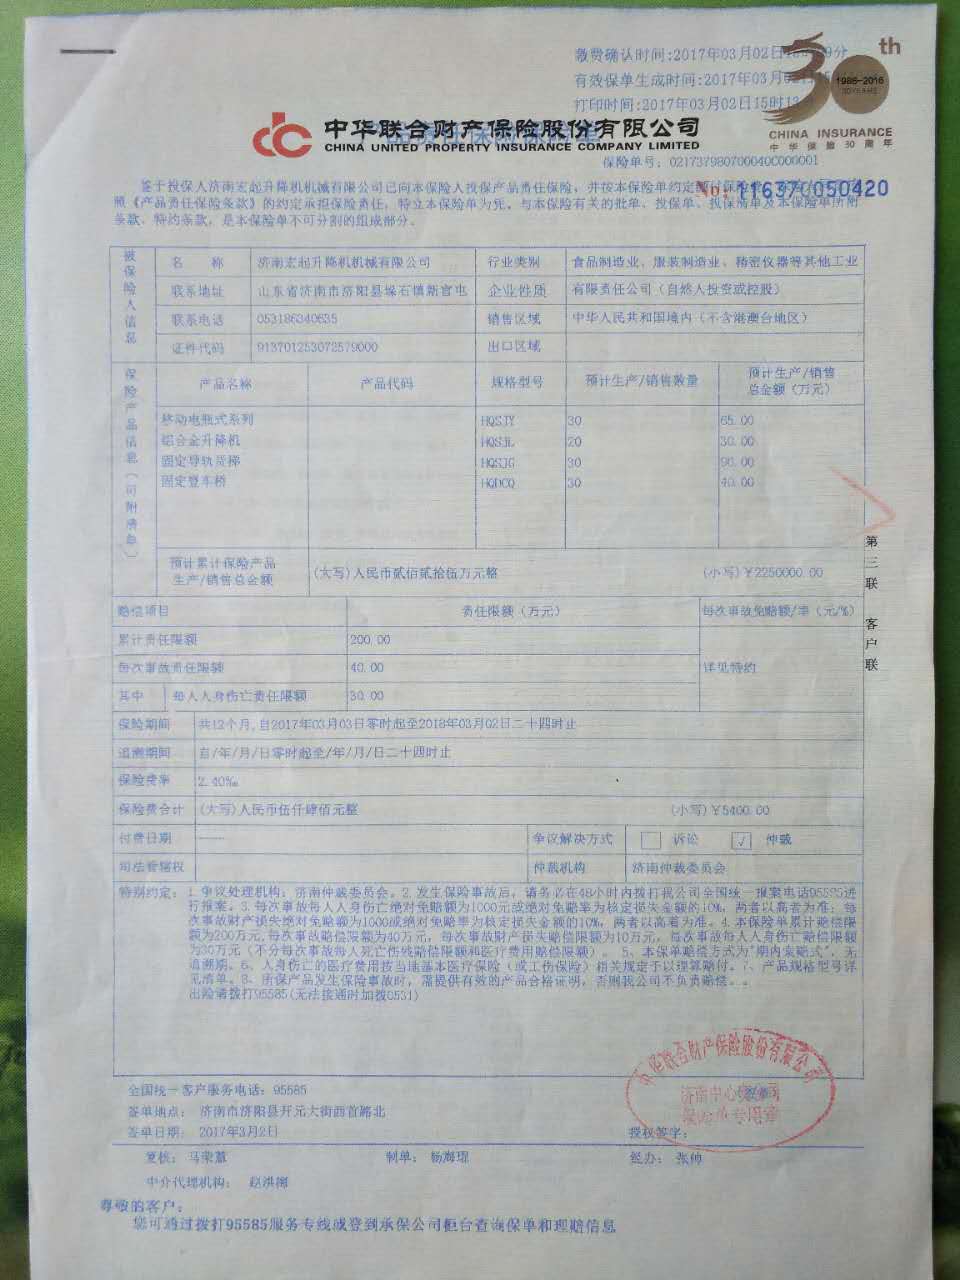 缴费确认时间:2017年03月02日
th
有效保单生成时间:2017年03月
1986-2016
30YEARS
打印时间:2017年03月02日15时13
中华联合财产保险股份有限公司
CHINA UNITED PROPERTY INSURANCE COMPANY LIMITED
CHINA INSURANCE
中华保险30周年
保险单号: 021737980700040C000001
No. 116370050420
鉴于投保人济南宏起升降机机械有限公司已向本保险人投保产品责任保险，并按本保险单约定
照《产品责任保险条款》的约定承担保险责任，特立本保险单为凭。与本保险有关的批单、投保单、投保清单及本保险单所附
条款、特约条款，是本保险单不可分割的组成部分。
被保险人信息
名 称 济南宏起升降机机械有限公司 行业类别 食品制造业、服装制造业、精密仪器等其他工业
联系地址 山东省济南市济阳县垛石镇新官屯 企业性质 有限责任公司（自然人投资或控股）
联系电话 053186340635 销售区域 中华人民共和国境内（不含港澳台地区）
证件代码 913701253072579000 出口区域
保险产品信息（可附清单）
产品名称 产品代码 规格型号 预计生产/销售数量 预计生产/销售总金额（万元）
移动电瓶式系列 HQSJY 30 65.00
铝合金升降机 HQSJL 20 30.00
固定导轨货梯 HQSJG 30 90.00
固定登车桥 HQDCQ 30 40.00
预计累计保险产品生产/销售总金额 (大写)人民币贰佰贰拾伍万元整 (小写)￥2250000.00
第三联 客户联
赔偿项目 责任限额（万元） 每次事故免赔额/率（元/%）
累计责任限额 200.00
每次事故责任限额 40.00 详见特约
其中 每人人身伤亡责任限额 30.00
保险期间 共12个月,自2017年03月03日零时起至2018年03月02日二十四时止
追溯期间 自/年/月/日零时起至/年/月/日二十四时止
保险费率 2.40‰
保险费合计 (大写)人民币伍仟肆佰元整 (小写)￥5400.00
付费日期 争议解决方式 诉讼 √ 仲裁
司法管辖权 仲裁机构 济南仲裁委员会
特别约定： 1.争议处理机构：济南仲裁委员会。2.发生保险事故后，请务必在48小时内拨打我公司全国统一报案电话95585进
行报案。3.每次事故每人人身伤亡绝对免赔额为1000元或绝对免赔率为核定损失金额的10%，两者以高者为准；每
次事故财产损失绝对免赔额为1000或绝对免赔率为核定损失金额的10%，两者以高者为准。4.本保险单累计赔偿限
额为200万元,每次事故赔偿限额为40万元，每次事故财产损失赔偿限额为10万元，每次事故每人人身伤亡赔偿限额
为30万元（不分每次事故每人死亡伤残赔偿限额和医疗费用赔偿限额）。5、本保单赔偿方式为"期内索赔式"，无
追溯期。6、人身伤亡的医疗费用按当地基本医疗保险（或工伤保险）相关规定予以理算赔付。7、产品规格型号详
见清单。8、所保产品发生保险事故时，需提供有效的产品合格证明，否则我公司不负责赔偿。。
出险请拨打95585(无法接通时加拨0531)
中华联合财产保险股份有限公司
济南中心支公司
保险单专用章
全国统一客户服务电话：95585
签单地点： 济南市济阳县开元大街西首路北
签单日期： 2017年3月2日
授权签字：
复核： 马荣慧 制单： 杨海琨 经办： 张帅
中介代理机构： 赵洪搠
尊敬的客户：
您可通过拨打95585服务专线或登到承保公司柜台查询保单和理赔信息